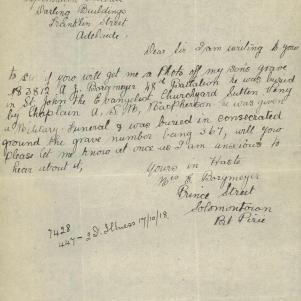 Darling Buildings
Franklin Street
Adelaide.
Dear Sir I am writing to you
to see if you will get me a Photo off my sons Grave
No 3812 A. J. Borgmeyer 48th Battalion he was buried
in St. John The Evangelist Churchyard Sutton Veny
by Chaplain A. E. M. Macpherson he was given
a Military Funeral & was buried in consecrated
ground the grave number being 367, will you
please let me know at once as I am anxious to
hear about it,
Yours in Haste
Mrs E Borgmeyer
Prince Street
Solomontown
Pt Pirie
7428
447 - 2 D. Illness 17/10/18.